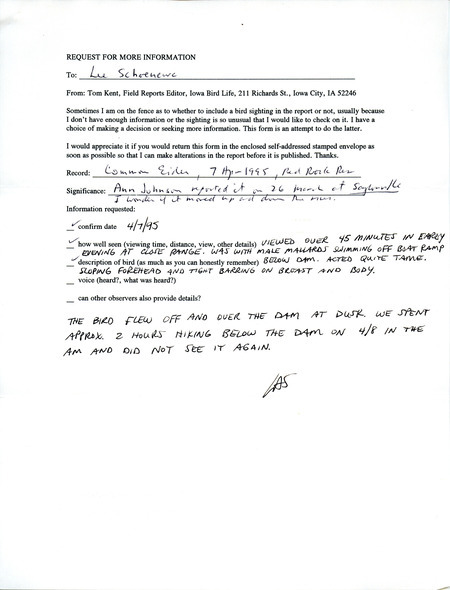 REQUEST FOR MORE INFORMATION
To: Lee Schoenewe
From: Tom Kent, Field Reports Editor, Iowa Bird Life, 211 Richards St., Iowa City, IA 52246
Sometimes I am on the fence as to whether to include a bird sighting in the report or not, usually because
I don't have enough information or the sighting is so unusual that I would like to check on it. I have a
choice of making a decision or seeking more information. This form is an attempt to do the latter.
I would appreciate it if you would return this form in the enclosed self-addressed stamped envelope as
soon as possible so that I can make alterations in the report before it is published. Thanks.
Record: Common Eider, 7 Apr 1995, Red Rock Res
Significance: Ann Johnson reported it on 26 March at Saylorville
I wonder if it moved up and down the river.
Information requested:
✓ confirm date 4/7/95
✓ how well seen (viewing time, distance, view, other details) VIEWED OVER 45 MINUTES IN EARLY
EVENING AT CLOSE RANGE. WAS WITH MALE MALLARDS SWIMMING OFF BOAT RAMP
✓ description of bird (as much as you can honestly remember) BELOW DAM. ACTED QUITE TAME.
SLOPING FOREHEAD AND TIGHT BARRING ON BREAST AND BODY.
voice (heard?, what was heard?)
can other observers also provide details?
THE BIRD FLEW OFF AND OVER THE DAM AT DUSK. WE SPENT
APPROX. 2 HOURS HIKING BELOW THE DAM ON 4/8 IN THE
AM AND DID NOT SEE IT AGAIN.